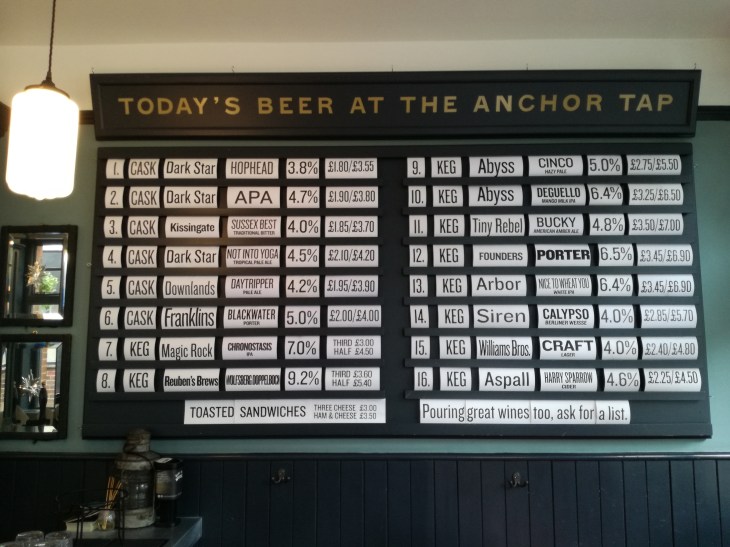 TODAY'S BEER AT THE ANCHOR TAP
1. CASK Dark Star HOPHEAD 3.8% £1.80/£3.55
2. CASK Dark Star APA 4.7% £1.90/£3.80
3. CASK Kissingate SUSSEX BEST TRADITIONAL BITTER 4.0% £1.85/£3.70
4. CASK Dark Star NOT INTO YOGA TROPICAL PALE ALE 4.5% £2.10/£4.20
5. CASK Downlands DAYTRIPPER PALE ALE 4.2% £1.95/£3.90
6. CASK Franklins BLACKWATER PORTER 5.0% £2.00/£4.00
7. KEG Magic Rock CHRONOSTASIS IPA 7.0% THIRD £3.00 HALF £4.50
8. KEG Reuben's Brews WOLFSBERG DOPPELBOCK 9.2% THIRD £3.60 HALF £5.40
9. KEG Abyss CINCO HAZY PALE 5.0% £2.75/£5.50
10. KEG Abyss DEGUELLO MANGO MILK IPA 6.4% £3.25/£6.50
11. KEG Tiny Rebel BUCKY AMERICAN AMBER ALE 4.8% £3.50/£7.00
12. KEG FOUNDERS PORTER 6.5% £3.45/£6.90
13. KEG Arbor NICE TO WHEAT YOU WHITE IPA 6.4% £3.45/£6.90
14. KEG Siren CALYPSO BERLINER WEISSE 4.0% £2.85/£5.70
15. KEG Williams Bros. CRAFT LAGER 4.0% £2.40/£4.80
16. KEG Aspall HARRY SPARROW CIDER 4.6% £2.25/£4.50
TOASTED SANDWICHES THREE CHEESE £3.00 HAM & CHEESE £3.50
Pouring great wines too, ask for a list.